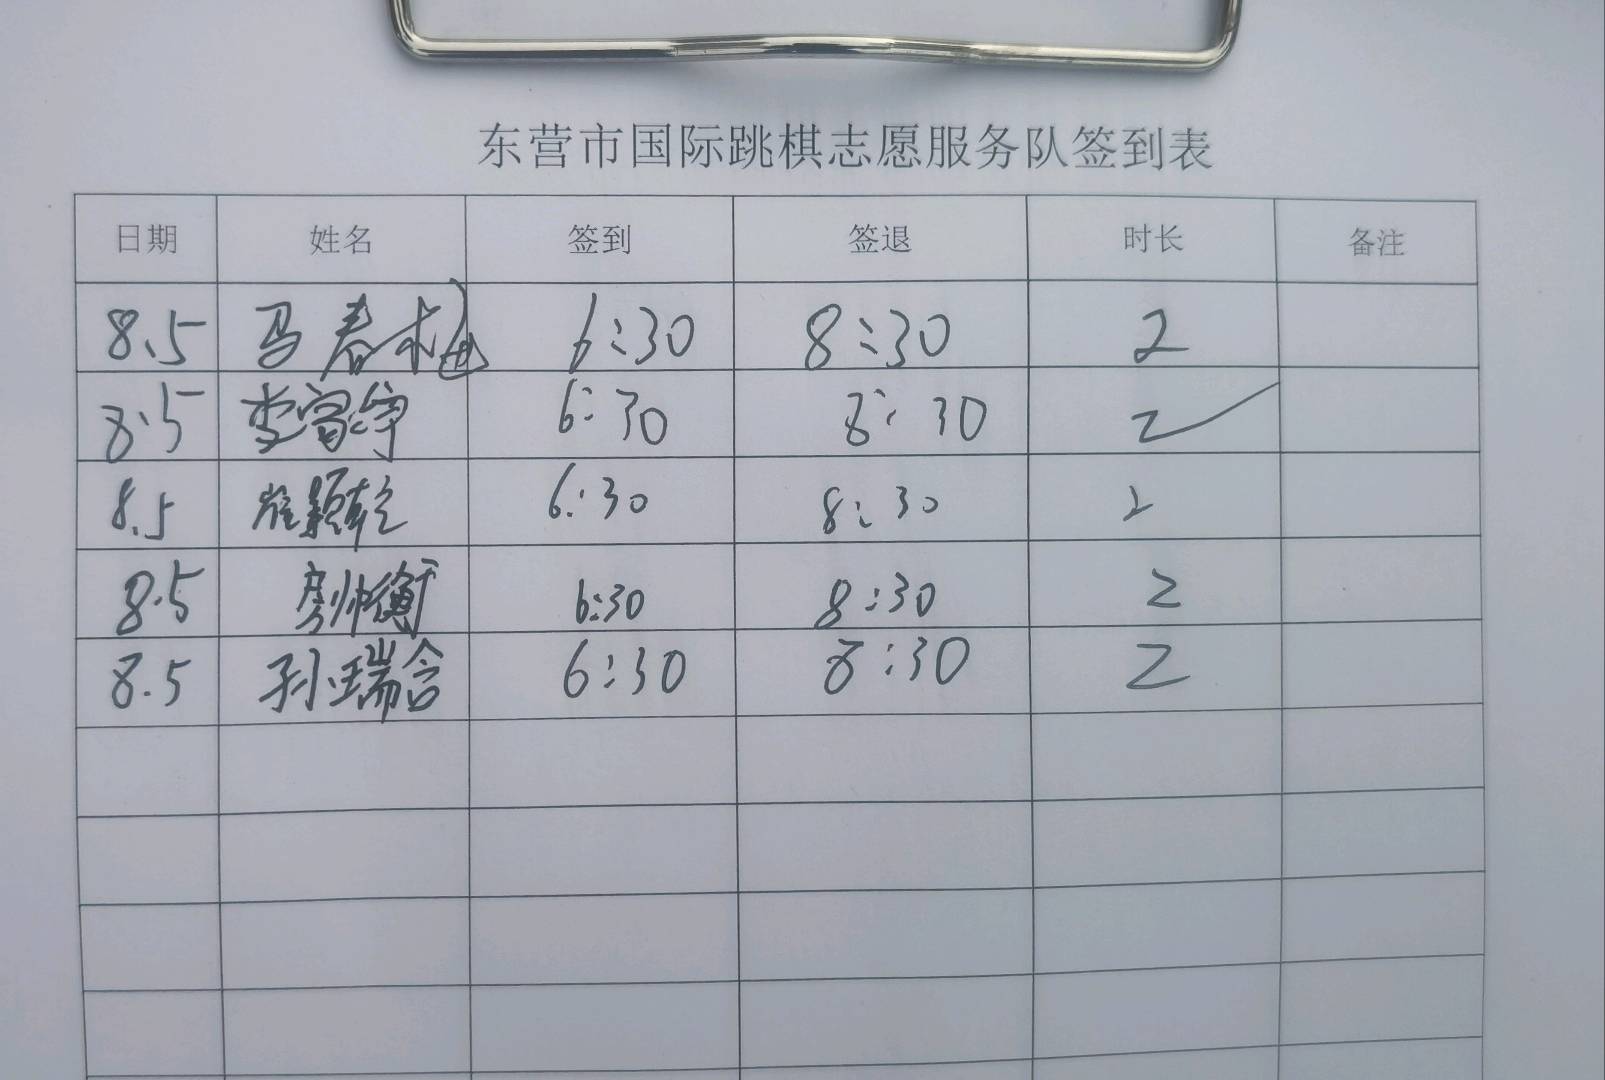 东营市国际跳棋志愿服务队签到表
日期 姓名 签到 签退 时长 备注
8.5 马春梅 6:30 8:30 2
8.5 李富宇 6:30 8:30 2
8.5 崔颢乾 6:30 8:30 2
8.5 房帅衡 6:30 8:30 2
8.5 孙瑞含 6:30 8:30 2